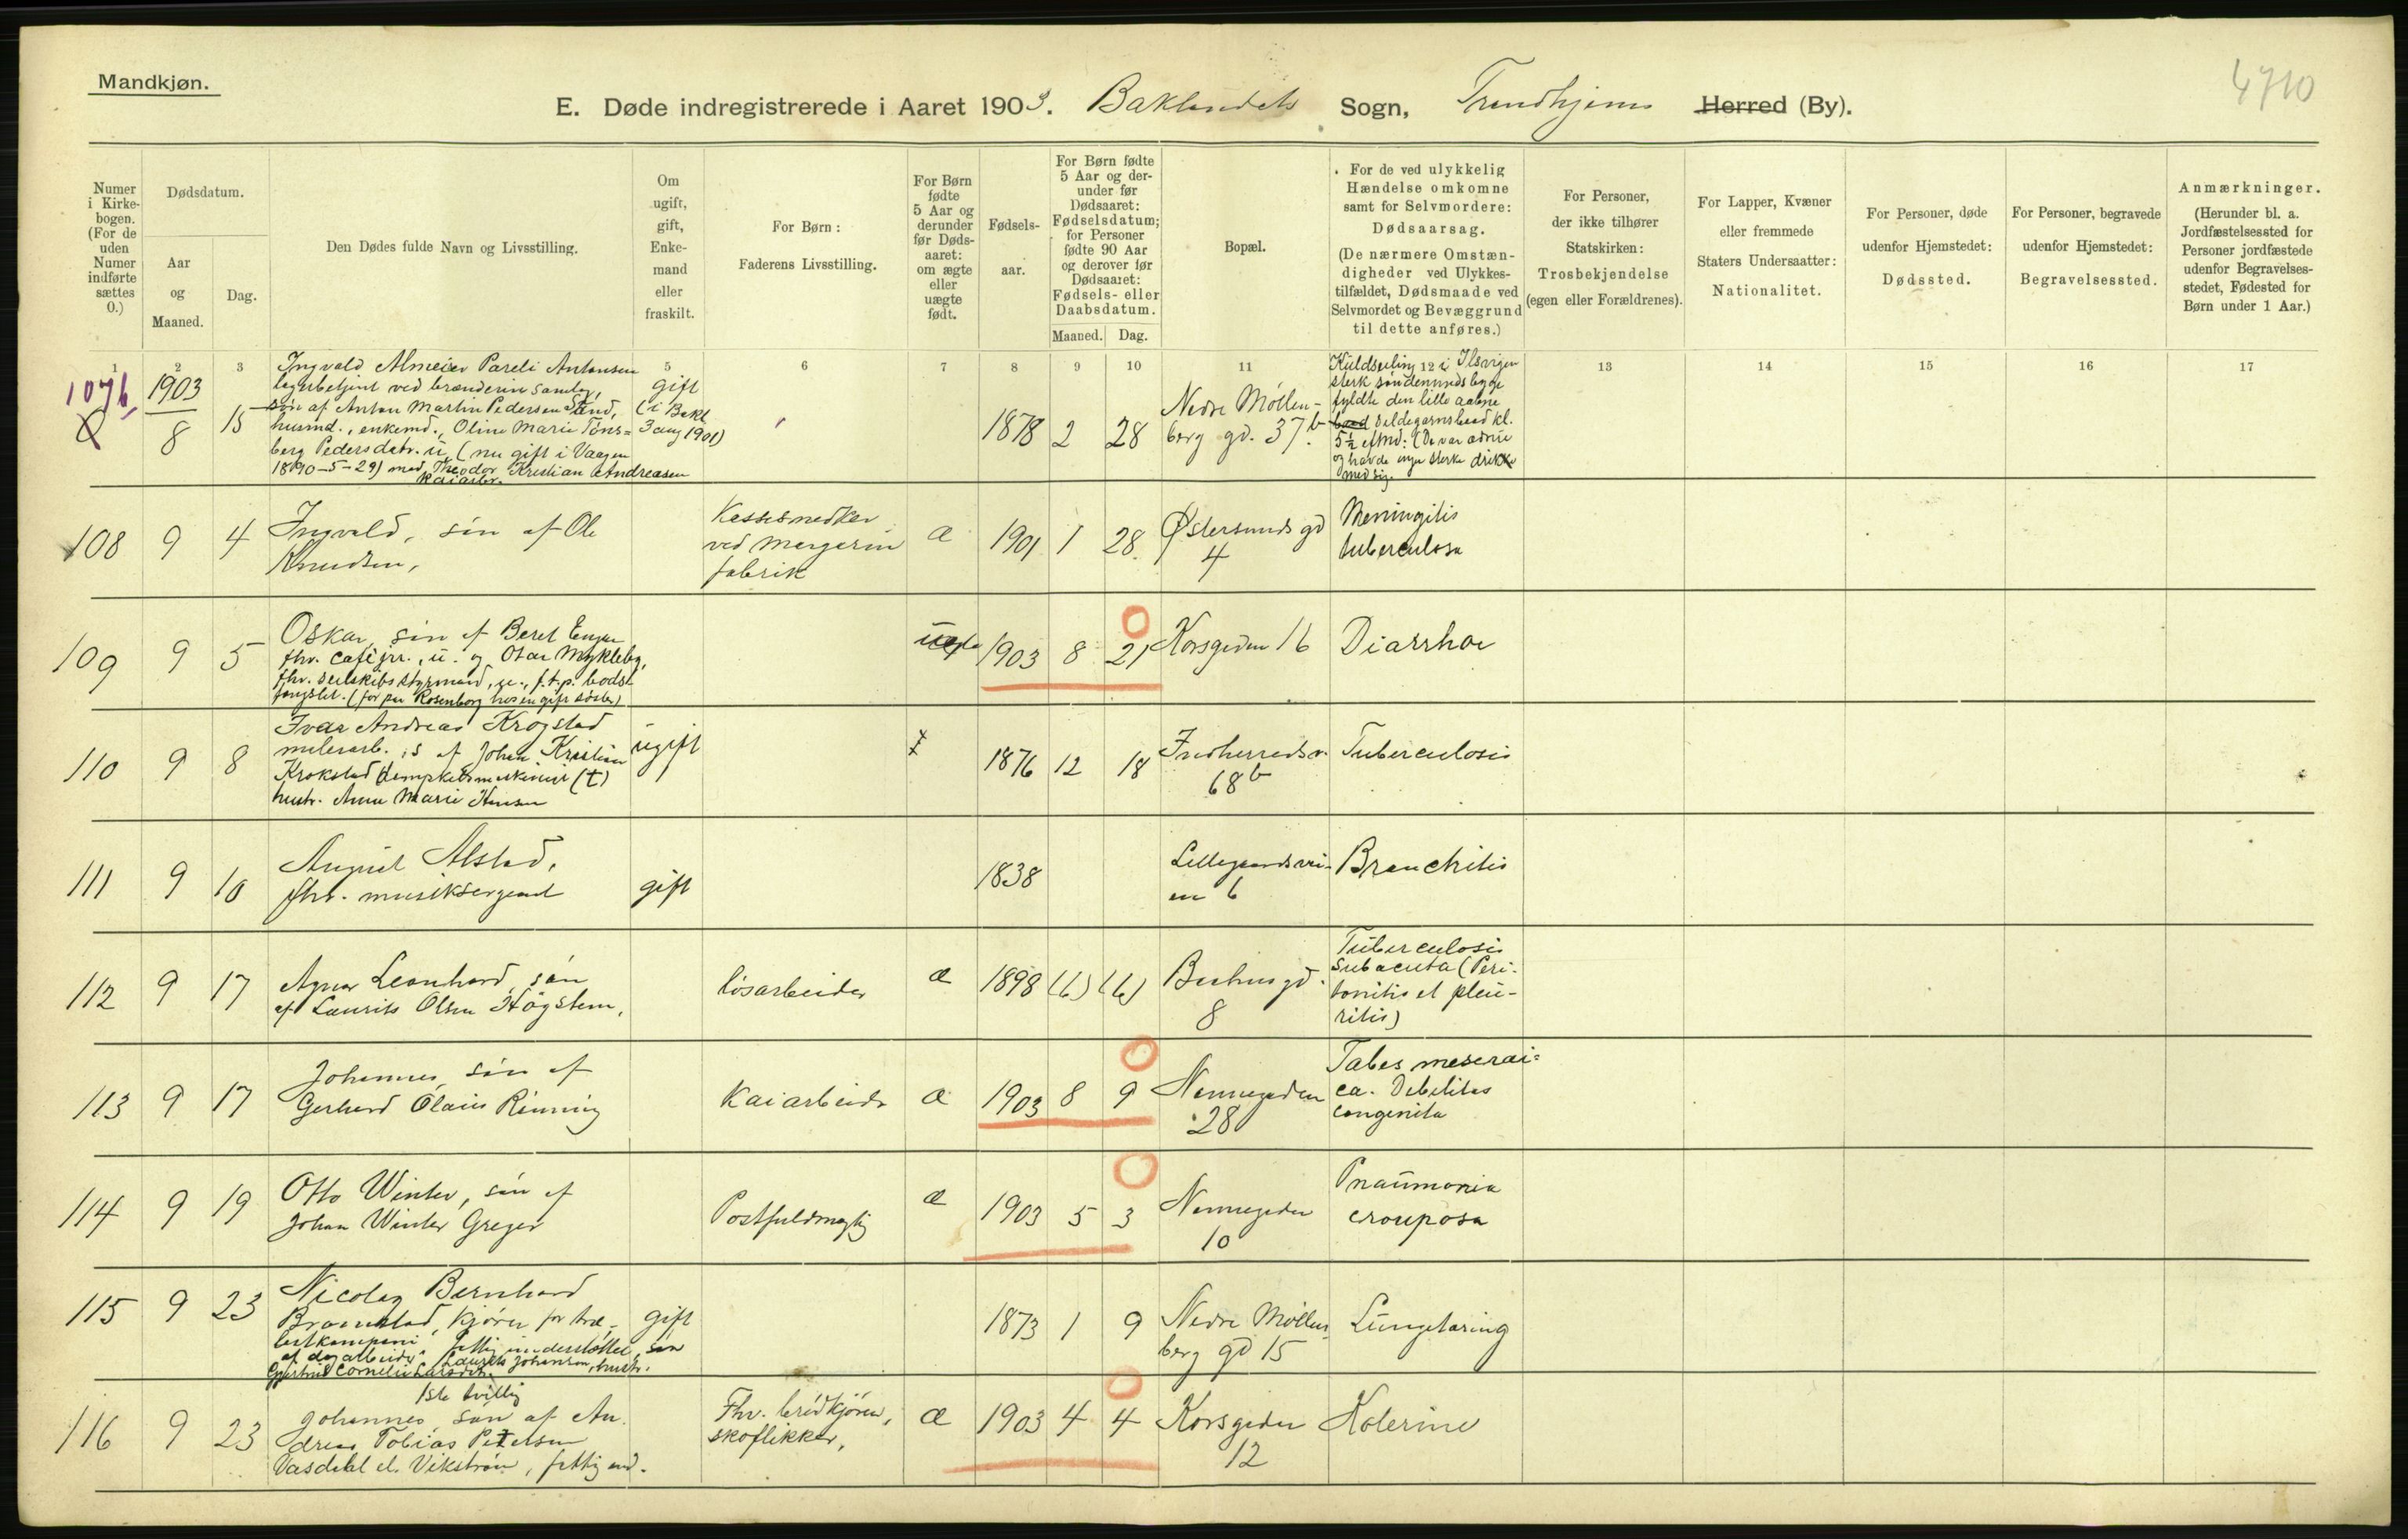 Mandkjøn.
4710
E. Døde indregistrerede i Aaret 1903. Baklandets Sogn, Trondhjems Herred (By).
Numer i Kirkebogen. (For de uden Numer indførte sættes 0.)
Dødsdatum.
Aar og Maaned.
Dag.
Den Dødes fulde Navn og Livsstilling.
Om ugift, gift, Enkemand eller fraskilt.
For Børn: Faderens Livsstilling.
For Børn fødte 5 Aar og derunder før Dødsaaret: om ægte eller uægte født.
Fødselsaar.
For Børn fødte 5 Aar og derunder før Dødsaaret: Fødselsdatum; for Personer fødte 90 Aar og derover før Dødsaaret: Fødsels- eller Daabsdatum.
Maaned. Dag.
Bopæl.
For de ved ulykkelig Hændelse omkomne samt for Selvmordere: Dødsaarsag. (De nærmere Omstændigheder ved Ulykkestilfældet, Dødsmaade ved Selvmordet og Bevæggrund til dette anføres.)
For Personer, der ikke tilhører Statskirken: Trosbekjendelse (egen eller Forældrenes).
For Lapper, Kvæner eller fremmede Staters Undersaatter: Nationalitet.
For Personer, døde udenfor Hjemstedet: Dødssted.
For Personer, begravede udenfor Hjemstedet: Begravelsessted.
Anmærkninger. (Herunder bl. a. Jordfæstelsessted for Personer jordfæstede udenfor Begravelsesstedet, Fødested for Børn under 1 Aar.)
1 2 3 5 6 7 8 9 10 11 12 13 14 15 16 17
107b 1903 8 15
Ingvald Almeier Pareli Antonsen
søn af Anton Martin Pedersen
husmd., enkemd., Oline Marie Töns=
berg Pedersdatr. u. (nu gift i Vaagen
1890-5-29) med Theodor Kristian Andreasen
kaiarbr.
gift
(i Bakl
3 aug 1901)
1878 2 28
Nedre Møllen-
berg gd. 37b.
Kuldseiling i Ilsvigen
sterk søndenvinds
fyldte den lille aabne
sildegarnsbaad kl.
5½ eftmd. (De var ædrue
og havde ingen sterke drikke
med sig.
108 9 4
Ingvald, søn af Ole
Knudsen,
Kassesnedker
ved margarin
fabrik
æ 1901 1 28.
Østersunds gd
4
Meningitis
tuberculosa
109 9 5
Oskar, søn af Beret
fhv. , u. og Mykleby,
fhv. seilskibs styrmand, u.,
fængslet. ( Rosenborg hos en gift søster)
uegte 1903 8 21
Korsgaden 16
Diarrhoe
110 9 8
Ivar Andreas Krogstad
malerarb. , s af Johan Kristian
Krokstad (t)
hustr. Anna Marie Hansen
ugift
1876 12 18
Indherredsv.
68b
Tuberculosis
111 9 10
August Alstad,
fhv. musiksergeant
gift
1838
Lillegaardsvei-
en 6
Bronchitis
112 9 17
Agnar Leonhard, søn
af Laurits Olsen Högstem,
løsarbeider
æ 1898 (6) (6)
gd.
8
Tuberculosis
subacuta (Peri-
tonitis et pleu-
ritis)
113 9 17
Johannes, søn af
Gerhard Olaus Rönning
Kaiarbeider
æ 1903 8 9
Nonnegaden
28
Tabes meserai=
ca. Debilitas
congenita
114 9 19
Otto Winter, søn af
Johan Winter Greger
Postfuldmægtig
æ 1903 5 3
Nonnegaden
10
Pnaumonia
crouposa
115 9 23
Nicolay Bernhard
, kjører for træ-
lastkompani fattig understøttet, søn
af dagarbeider Laurits Johansen, hustr.
Gjertrud Cornelie Larsdtr.
gift
1873 1 9
Nedre Møllen
berg gd 15
Lungetæring
116 9 23
1ste tvilling
Johannes, søn af An.
dreas Tobias Petersen
Vasdahl el. Vikström, fattig und.
Fhv. brödkjörer,
skoflikker,
æ 1903 4 4
Korsgaden
12
Kolerine